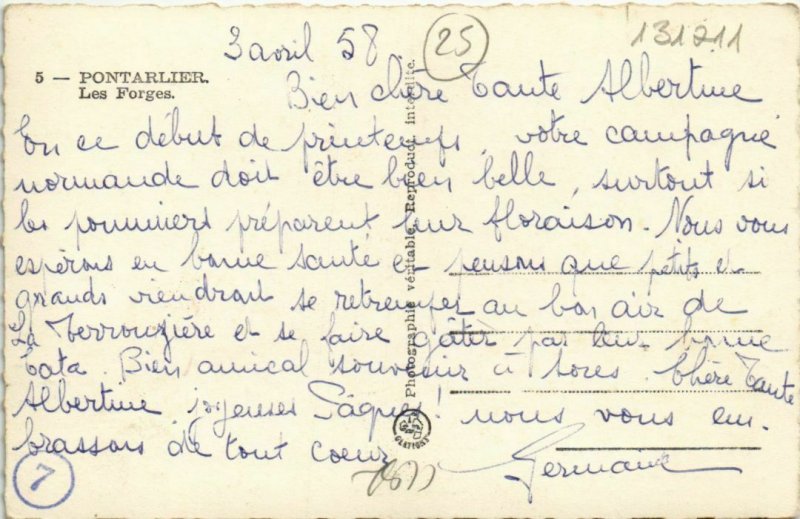 3 avril 58
25
131211
5 — PONTARLIER.
Les Forges.
Bien chère Tante Albertine
En ce début de printemps, votre campagne
normande doit être bien belle, surtout si
les pommiers préparent leur floraison. Nous vous
espérons en bonne santé et pensons que petits et
grands viendront se retremper au bon air de
La et se faire gâter par leur bonne
tata. Bien amical souvenir à tores. Chère Tante
Albertine joyeuses Pâques! nous vous em-
brassons de tout coeur
Germaine
7
Photographie véritable. Reproduct. interdite.